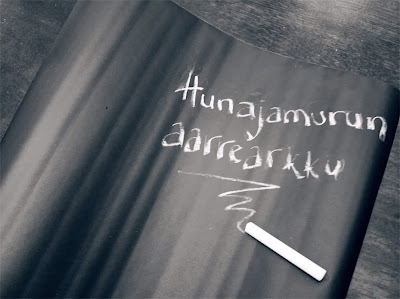 Hunajamurun
aarrearkku